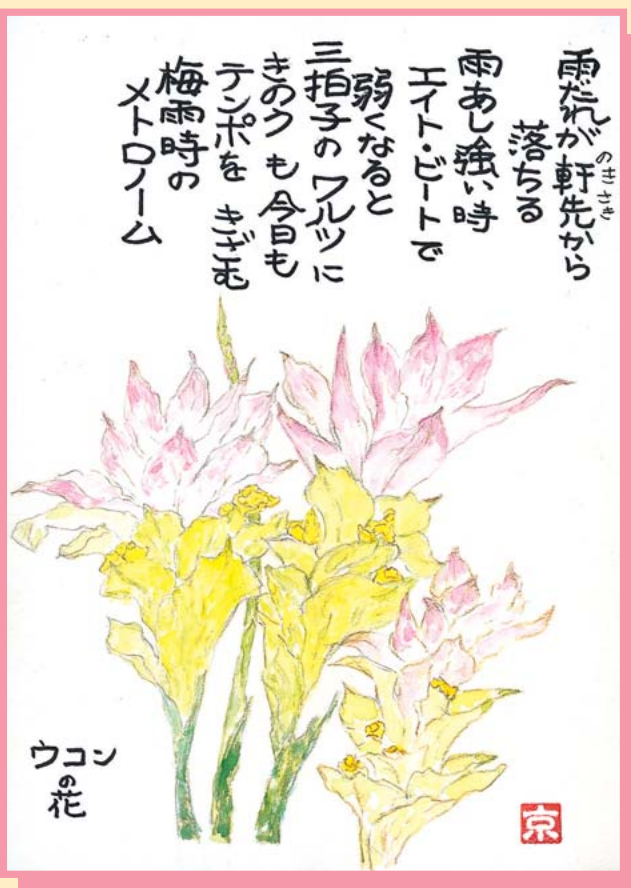 雨だれが軒先から
のきさき
落ちる
雨あし強い時
エイト・ビートで
弱くなると
三拍子のワルツに
きのうも今日も
テンポを きざむ
梅雨時の
メトロノーム
ウコン
の
花
京